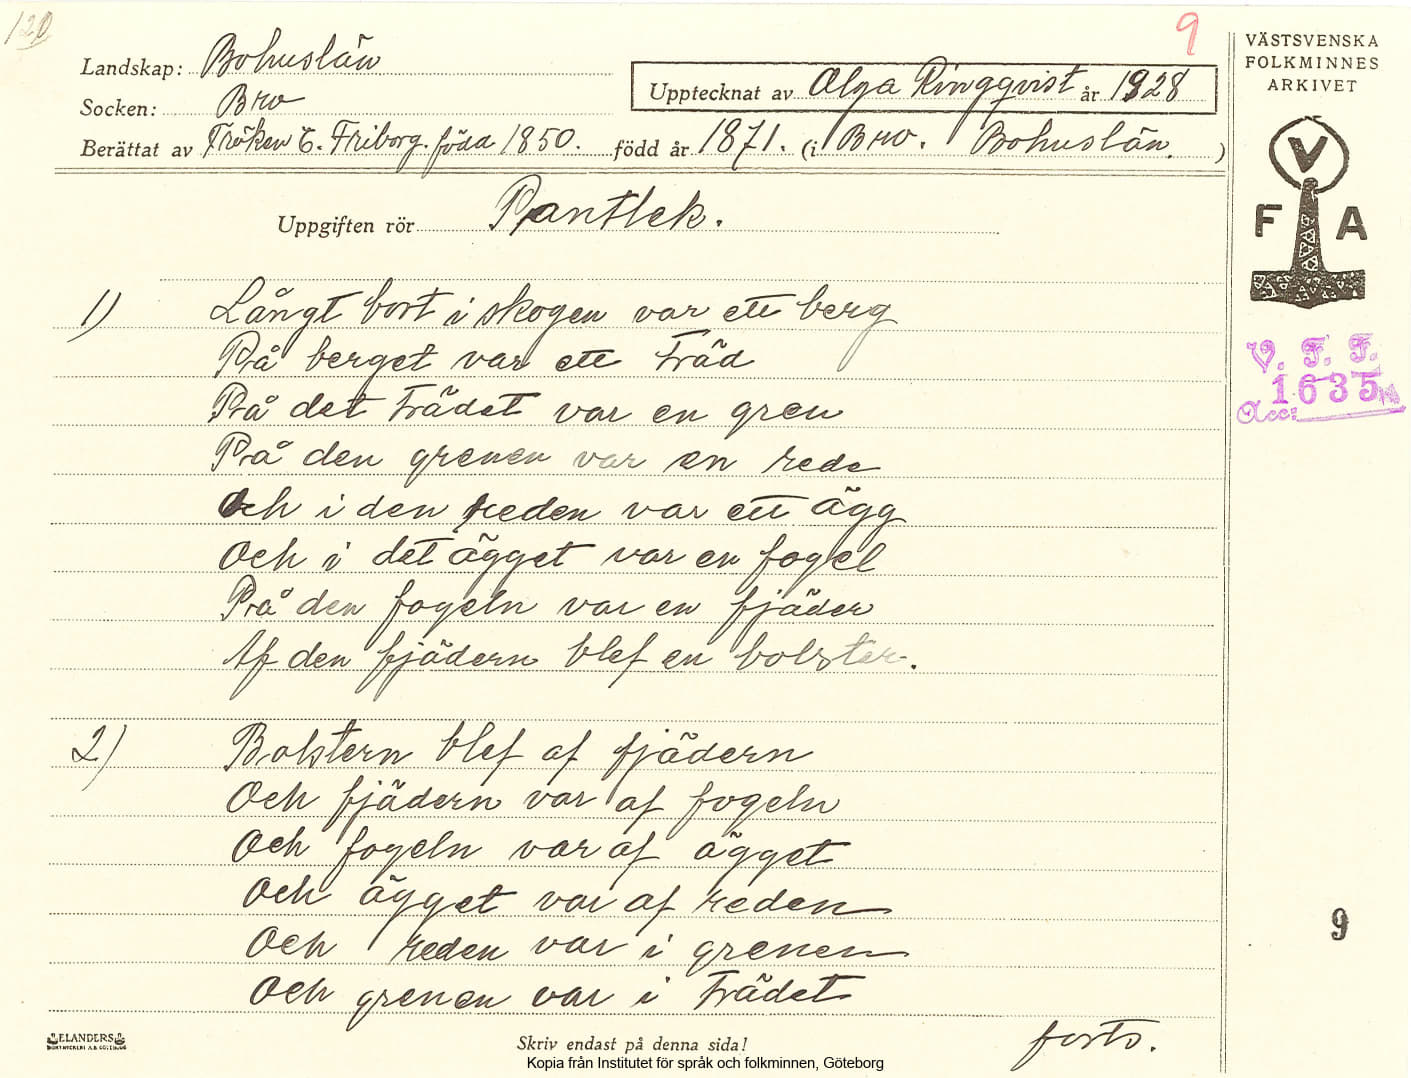 120
9
Landskap: Bohuslän
Socken: Bro
Upptecknat av Olga Ringqvist år 1928
Berättat av Fröken C. Friborg. född 1850. född år 1871. (i Bro. Bohuslän. )
Uppgiften rör Pantlek.
1) Långt bort i skogen var ett berg
På berget var ett träd
På det trädet var en gren
På den grenen var en rede
Och i den reden var ett ägg
Och i det ägget var en fogel
På den fogeln var en fjäder
Af den fjädern blef en bolster.
2) Bolstern blef af fjädern
Och fjädern var af fogeln
Och fogeln var af ägget
Och ägget var af reden
Och reden var i grenen
Och grenen var i trädet
forts.
VÄSTSVENSKA
FOLKMINNES
ARKIVET
V
F A
V. F. F.
1635
Acc:
9
ELANDERS
Skriv endast på denna sida!
Kopia från Institutet för språk och folkminnen, Göteborg